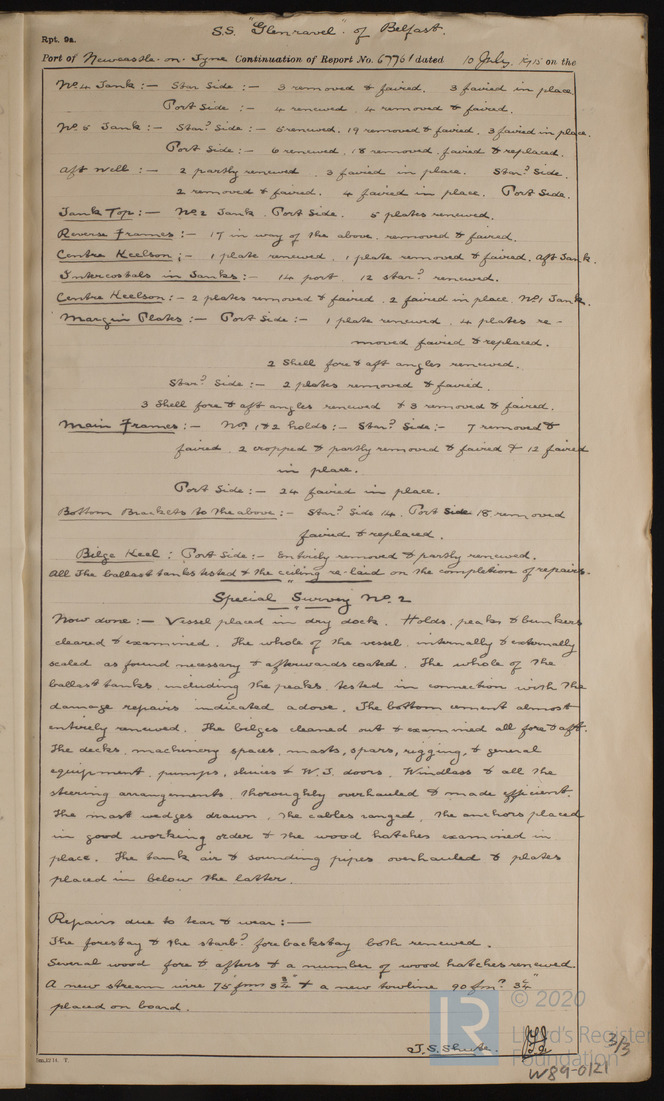 S.S. "Glenravel" of Belfast.
Rpt. 9a.
Port of Newcastle-on-Tyne Continuation of Report No. 67761 dated 10 July, 1915 on the
No. 4 Tank :— Star Side :— 3 removed & faired. 3 faired in place.
Port Side :— 4 renewed, 4 removed & faired.
No. 5 Tank :— Star? Side :— 5 renewed, 19 removed & faired, 3 faired in place.
Port Side :— 6 renewed, 18 removed, faired & replaced.
Aft Well :— 2 partly renewed, 3 faired in place. Star? Side.
2 removed & faired. 4 faired in place. Port Side.
Tank Top :— No. 2 Tank. Port Side. 5 plates renewed.
Reverse Frames :— 17 in way of the above, removed & faired.
Centre Keelson :— 1 plate renewed, 1 plate removed & faired, aft Tank.
Intercostals in Tanks :— 14 port 12 star? renewed.
Centre Keelson :— 2 plates removed & faired, 2 faired in place, No. 1 Tank.
Margin Plates :— Port Side :— 1 plate renewed, 4 plates re-
moved faired & replaced.
2 Shell fore & aft angles renewed.
Star? Side :— 2 plates removed & faired.
3 Shell fore & aft angles renewed & 3 removed & faired.
Main Frames :— No. 1 & 2 holds :— Star? Side :— 7 removed &
faired, 2 cropped & partly removed & faired & 12 faired
in place.
Port Side :— 24 faired in place.
Bottom Brackets to the above :— Star? Side 14, Port Side 18 removed
faired & replaced.
Bilge Keel : Port Side :— Entirely removed & partly renewed.
All the ballast tanks tested & the ceiling re-laid on the completion of repairs.
Special Survey No. 2
Now done :— Vessel placed in dry dock. Holds, peaks & bunkers
cleared & examined. The whole of the vessel, internally & externally
scaled as found necessary & afterwards coated. The whole of the
ballast tanks, including the peaks, tested in connection with the
damage repairs indicated above. The bottom cement almost
entirely renewed. The bilges cleaned out & examined all fore & aft.
The decks, machinery spaces, masts, spars, rigging, & general
equipment, pumps, sluices & W.T. doors. Windlass & all the
steering arrangements, thoroughly overhauled & made efficient.
The mast wedges drawn, the cables ranged, the anchors placed
in good working order & the wood hatches examined in
place. The tank air & sounding pipes overhauled & plates
placed in below the latter.
Repairs due to tear & wear :—
The forestay & the starb? fore backstay both renewed.
Several wood fore & afters & a number of wood hatches renewed.
A new stream wire 75 fms 3 3/4" & a new towline 90 fm?
placed on board.
J.S. Shute.
3/3
© 2020
LR
Lloyd's Register
Foundation
W89-0121